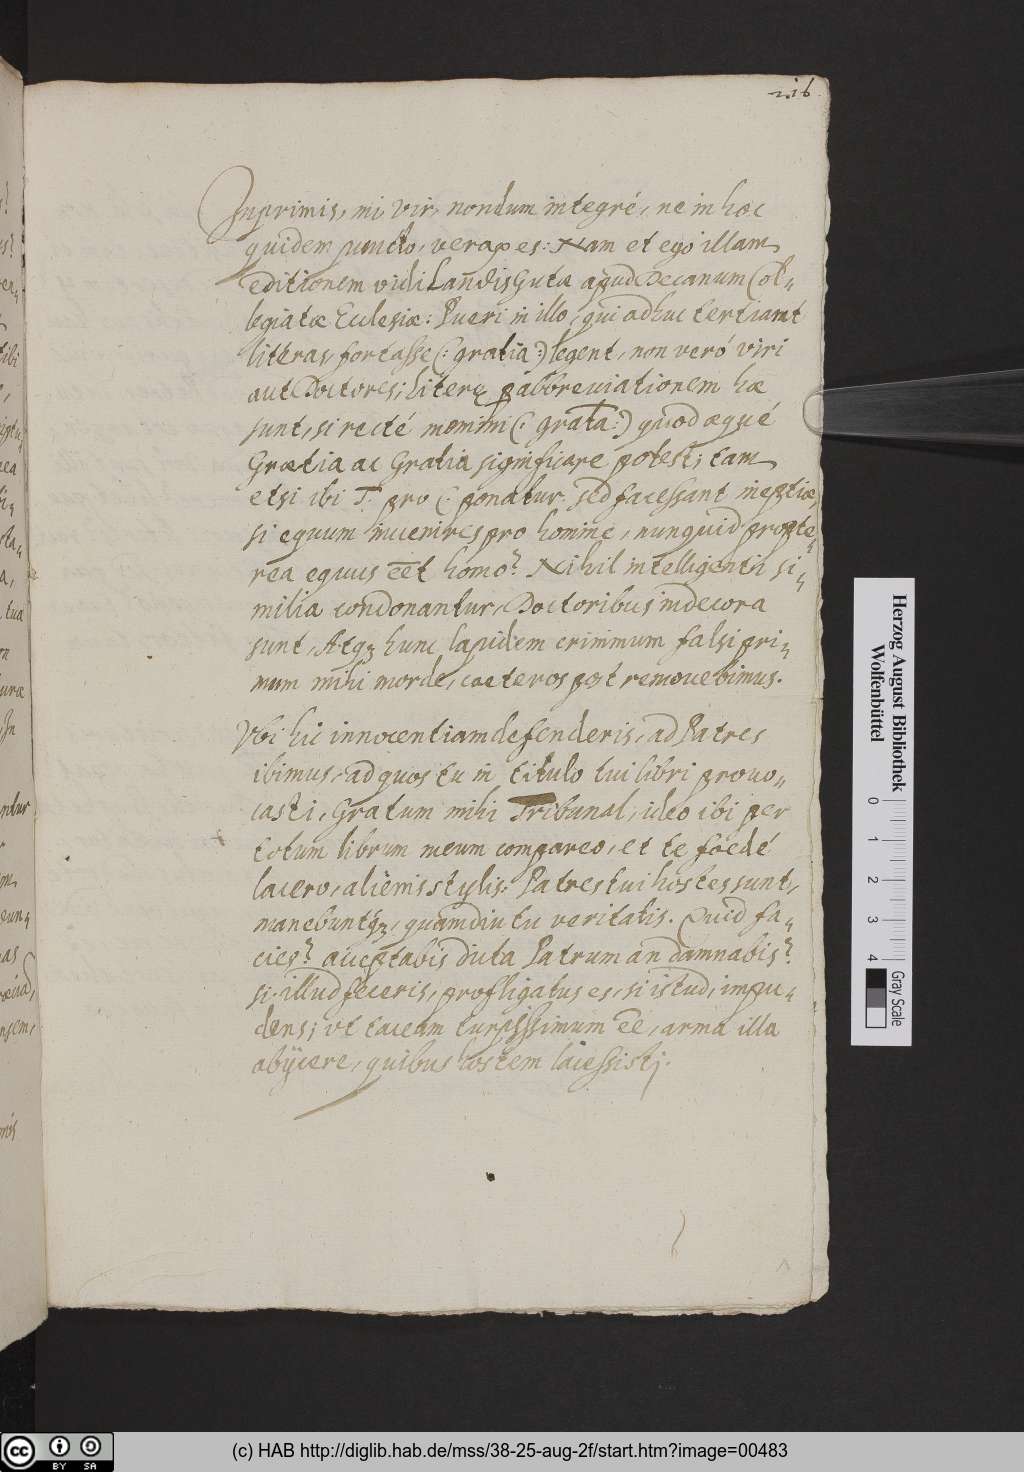 216
Inprimis, mi vir, nondum integré, ne in hoc
quidem puncto, verax es: Nam et ego illam
editionem vidi Landishutæ apud Decanum Col-
legiatæ Ecclesiæ: Pueri in illo, qui adhuc tertiant
litteras, fortasse (: gratia :) legent, non veró viri
aut Doctores; literę p abbreuiationem hæ
sunt, si recté memini (: grata :) quod æqué
Grætia ac Gratia significare potest; tam
etsi ibi T. pro C. ponatur: sed facessant ineptiæ,
si equum inuenires pro homine, nunquid propte-
rea equus eet homo? Nihil intelligenti si-
milia condonantur, Doctoribus indecora
sunt, Atqꝫ hunc lapidem criminum falsi pri-
mum mihi morde, cæteros post remouebimus.
Vbi hic innocentiam defenderis, ad Patres
ibimus, ad quos tu in titulo tui libri prouo-
casti, Gratum mihi Tribunal, ideo ibi per
totum librum meum compareo, et te foedé
lacero, alienis stylis: Patres tui hostes sunt,
manebuntqꝫ, quamdiu tu veritatis. Quid fa-
cies? acceptabis dicta Patrum an damnabis?
si illud feceris, profligatus es, si istud, impu-
dens; vt taceam turpissimum eē, arma illa
abijcere, quibus hostem lacessisti.
Herzog August Bibliothek
Wolfenbüttel
0 1 2 3 4
Gray Scale
cc BY SA
(c) HAB http://diglib.hab.de/mss/38-25-aug-2f/start.htm?image=00483